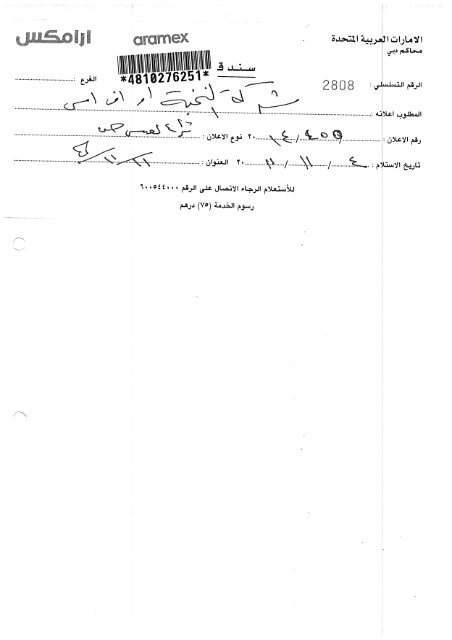 الامارات العربية المتحدة aramex ارامكس
محاكم دبي
سند ق
*4810276251*
الرقم التسلسلي : 2808 الفرع :
المطلوب اعلانه شركة النخبة ار اف اس
رقم الاعلان : ٢٠ نوع الاعلان :
تاريخ الاستلام : ٤ / ١١ / ٢٠١١ العنوان :
للأستعلام الرجاء الاتصال على الرقم ٦٠٠٥٤٤٠٠٠
رسوم الخدمة (٧٥) درهم